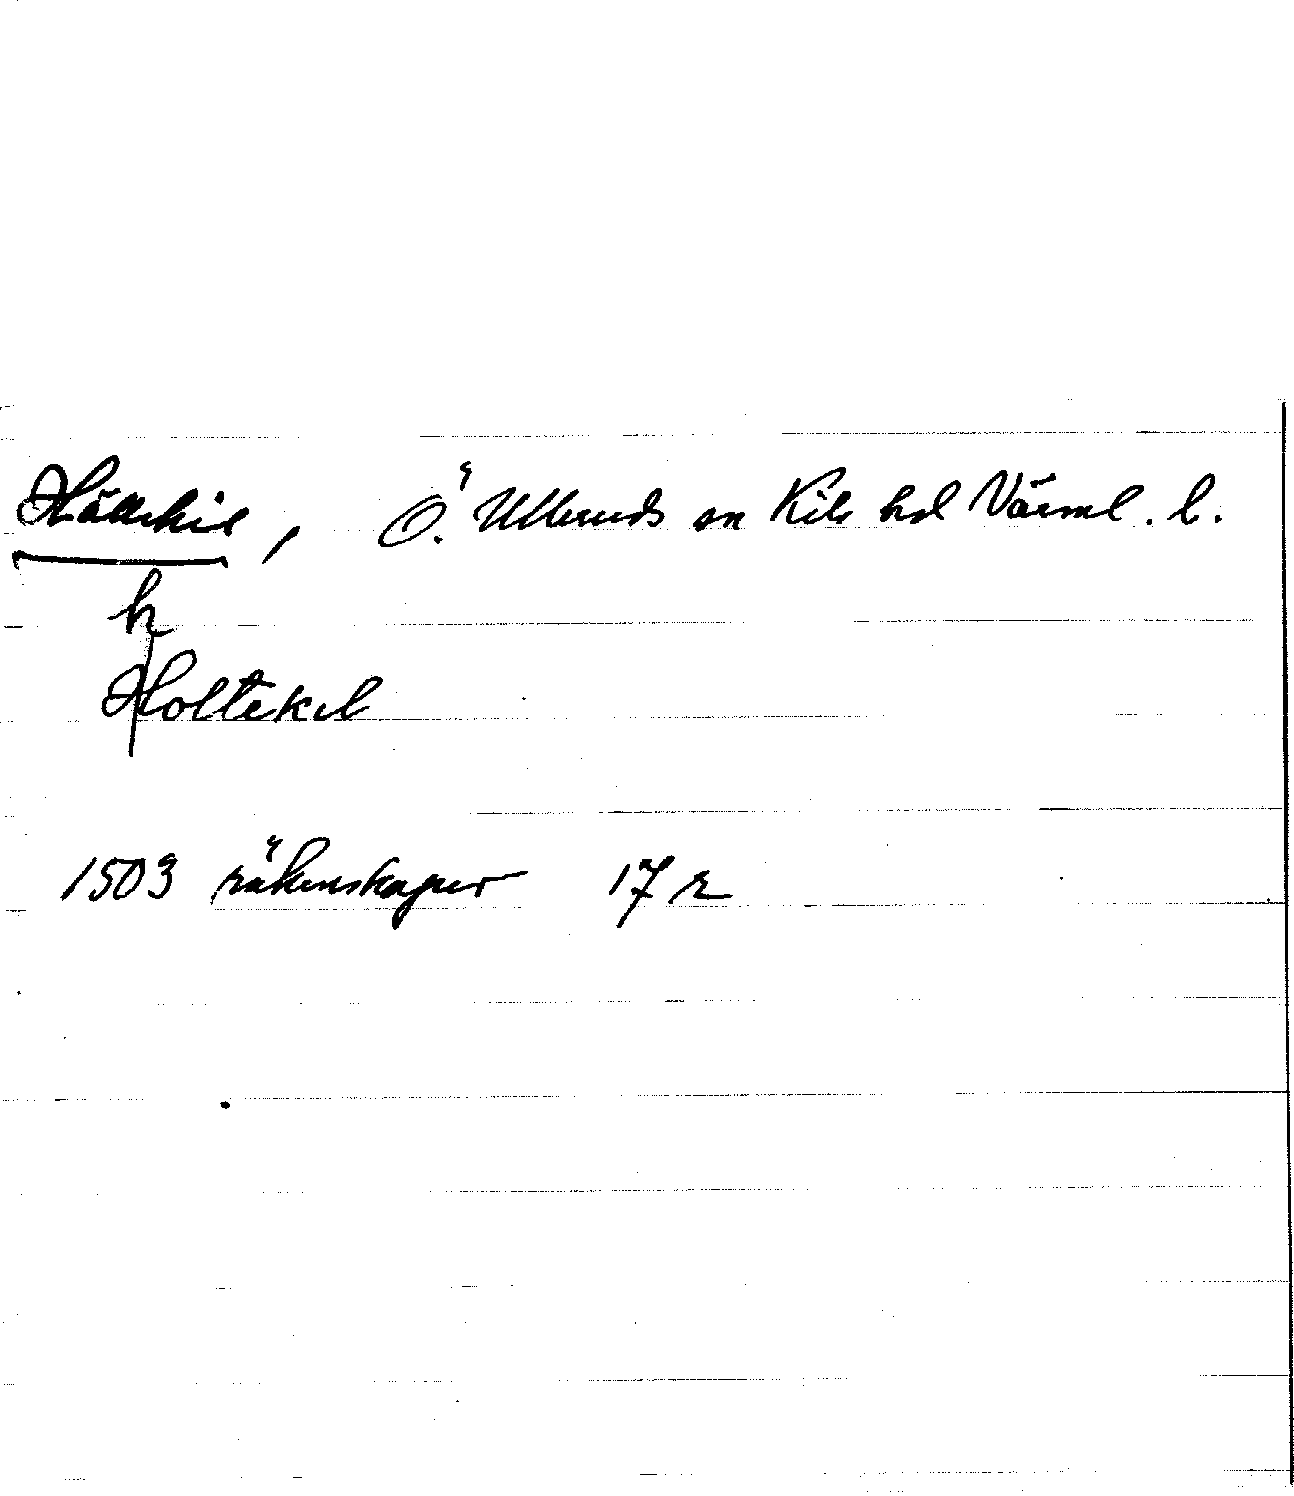 Hållekil, Ö. Ulleruds sn Kils hd Värml. l.
h
Holtekil
1503 räkenskaper 17 r